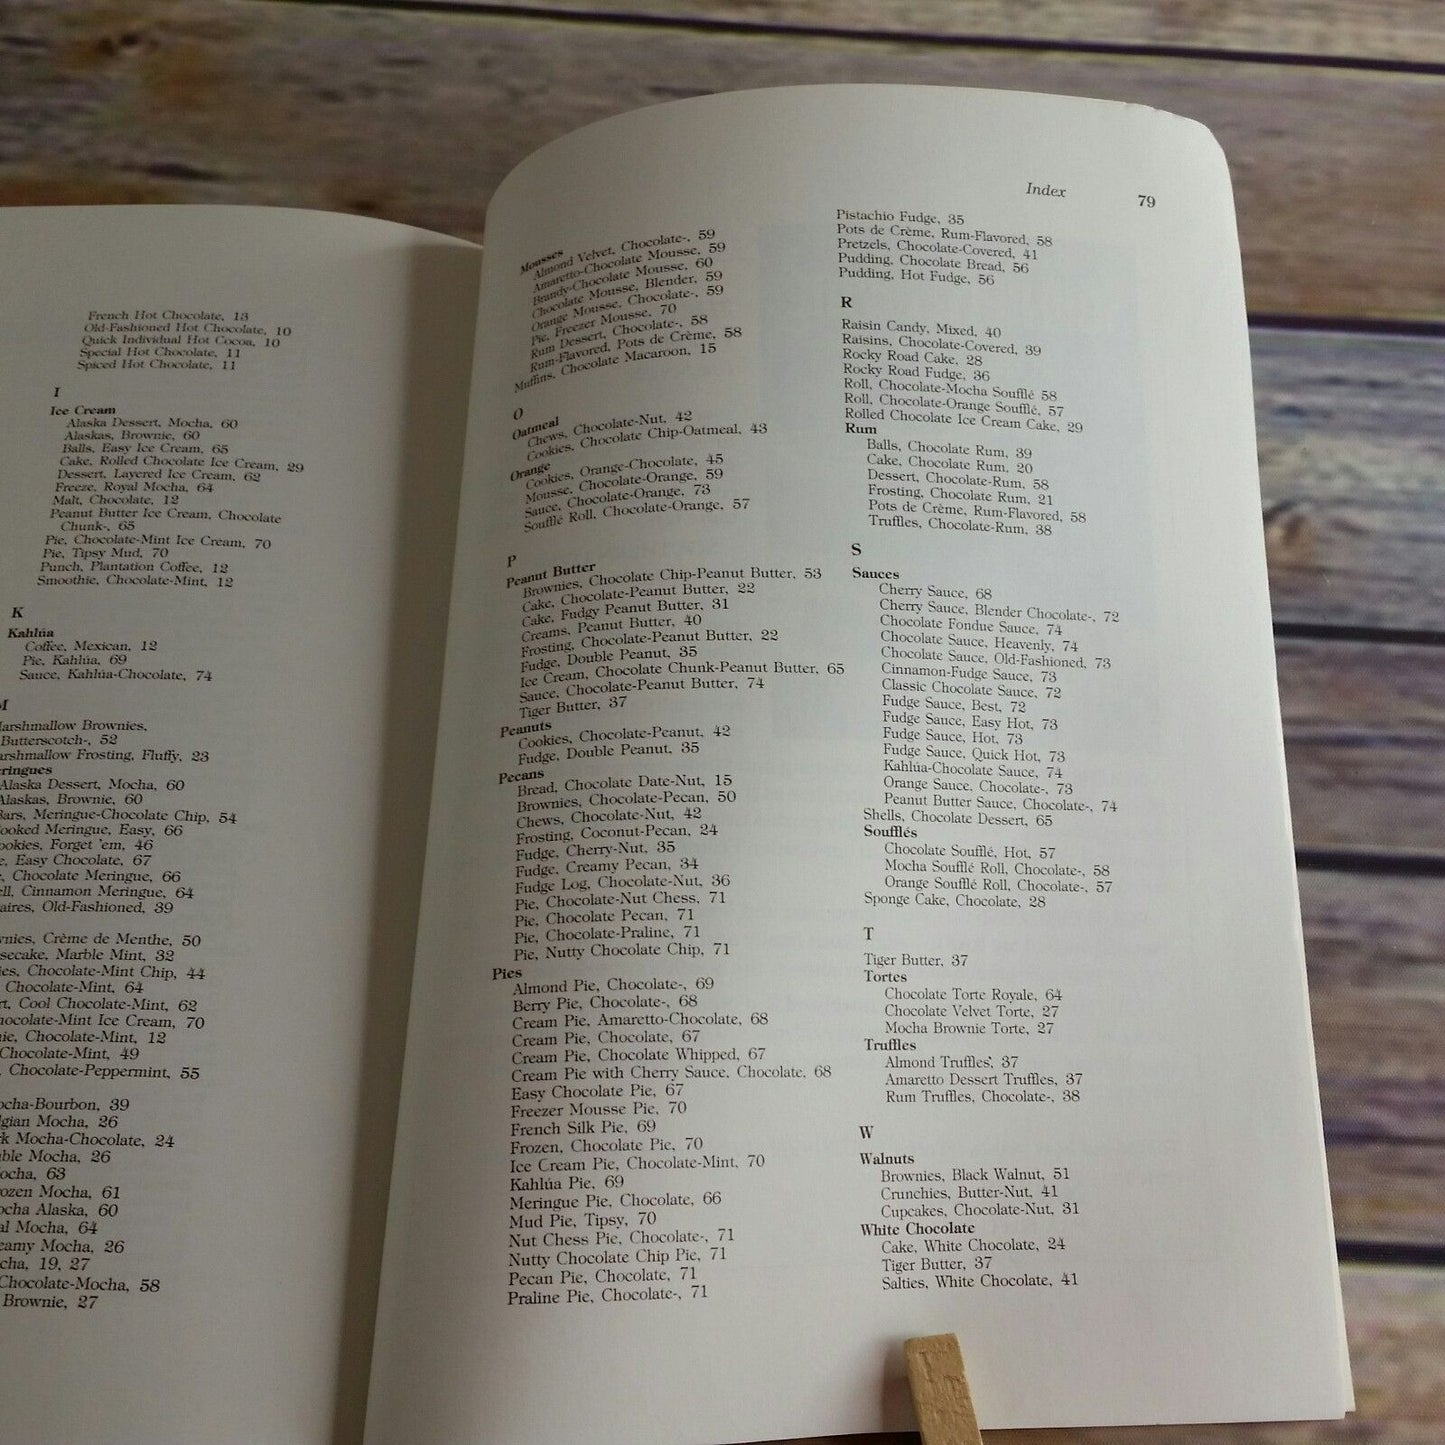 French Hot Chocolate, 13
Old-Fashioned Hot Chocolate, 10
Quick Individual Hot Cocoa, 10
Special Hot Chocolate, 11
Spiced Hot Chocolate, 11
I
Ice Cream
Alaska Dessert, Mocha, 60
Alaskas, Brownie, 60
Balls, Easy Ice Cream, 65
Cake, Rolled Chocolate Ice Cream, 29
Dessert, Layered Ice Cream, 62
Freeze, Royal Mocha, 64
Malt, Chocolate, 12
Peanut Butter Ice Cream, Chocolate
Chunk-, 65
Pie, Chocolate-Mint Ice Cream, 70
Pie, Tipsy Mud, 70
Punch, Plantation Coffee, 12
Smoothie, Chocolate-Mint, 12
K
Kahlúa
Coffee, Mexican, 12
Pie, Kahlúa, 69
Sauce, Kahlúa-Chocolate, 74
M
arshmallow Brownies,
Butterscotch-, 52
arshmallow Frosting, Fluffy, 23
eringues
Alaska Dessert, Mocha, 60
Alaskas, Brownie, 60
Bars, Meringue-Chocolate Chip, 54
ooked Meringue, Easy, 66
ookies, Forget 'em, 46
e, Easy Chocolate, 67
e, Chocolate Meringue, 66
ell, Cinnamon Meringue, 64
aires, Old-Fashioned, 39
nies, Crème de Menthe, 50
secake, Marble Mint, 32
ies, Chocolate-Mint Chip, 44
Chocolate-Mint, 64
rt, Cool Chocolate-Mint, 62
hocolate-Mint Ice Cream, 70
ie, Chocolate-Mint, 12
Chocolate-Mint, 49
, Chocolate-Peppermint, 55
ocha-Bourbon, 39
lgian Mocha, 26
k Mocha-Chocolate, 24
ble Mocha, 26
ocha, 63
ozen Mocha, 61
ocha Alaska, 60
al Mocha, 64
eamy Mocha, 26
cha, 19, 27
Chocolate-Mocha, 58
Brownie, 27
Index 79
Mousses
Almond Velvet, Chocolate-, 59
Amaretto-Chocolate Mousse, 59
Brandy-Chocolate Mousse, 60
Chocolate Mousse, Blender, 59
Orange Mousse, Chocolate-, 59
Pie, Freezer Mousse, 70
Rum Dessert, Chocolate-, 58
Rum-Flavored, Pots de Crème, 58
Muffins, Chocolate Macaroon, 15
O
Oatmeal
Chews, Chocolate-Nut, 42
Cookies, Chocolate Chip-Oatmeal, 43
Orange
Cookies, Orange-Chocolate, 45
Mousse, Chocolate-Orange, 59
Sauce, Chocolate-Orange, 73
Soufflé Roll, Chocolate-Orange, 57
P
Peanut Butter
Brownies, Chocolate Chip-Peanut Butter, 53
Cake, Chocolate-Peanut Butter, 22
Cake, Fudgy Peanut Butter, 31
Creams, Peanut Butter, 40
Frosting, Chocolate-Peanut Butter, 22
Fudge, Double Peanut, 35
Ice Cream, Chocolate Chunk-Peanut Butter, 65
Sauce, Chocolate-Peanut Butter, 74
Tiger Butter, 37
Peanuts
Cookies, Chocolate-Peanut, 42
Fudge, Double Peanut, 35
Pecans
Bread, Chocolate Date-Nut, 15
Brownies, Chocolate-Pecan, 50
Chews, Chocolate-Nut, 42
Frosting, Coconut-Pecan, 24
Fudge, Cherry-Nut, 35
Fudge, Creamy Pecan, 34
Fudge Log, Chocolate-Nut, 36
Pie, Chocolate-Nut Chess, 71
Pie, Chocolate Pecan, 71
Pie, Chocolate-Praline, 71
Pie, Nutty Chocolate Chip, 71
Pies
Almond Pie, Chocolate-, 69
Berry Pie, Chocolate-, 68
Cream Pie, Amaretto-Chocolate, 68
Cream Pie, Chocolate, 67
Cream Pie, Chocolate Whipped, 67
Cream Pie with Cherry Sauce, Chocolate, 68
Easy Chocolate Pie, 67
Freezer Mousse Pie, 70
French Silk Pie, 69
Frozen, Chocolate Pie, 70
Ice Cream Pie, Chocolate-Mint, 70
Kahlúa Pie, 69
Meringue Pie, Chocolate, 66
Mud Pie, Tipsy, 70
Nut Chess Pie, Chocolate-, 71
Nutty Chocolate Chip Pie, 71
Pecan Pie, Chocolate, 71
Praline Pie, Chocolate-, 71
Pistachio Fudge, 35
Pots de Crème, Rum-Flavored, 58
Pretzels, Chocolate-Covered, 41
Pudding, Chocolate Bread, 56
Pudding, Hot Fudge, 56
R
Raisin Candy, Mixed, 40
Raisins, Chocolate-Covered, 39
Rocky Road Cake, 28
Rocky Road Fudge, 36
Roll, Chocolate-Mocha Soufflé 58
Roll, Chocolate-Orange Soufflé, 57
Rolled Chocolate Ice Cream Cake, 29
Rum
Balls, Chocolate Rum, 39
Cake, Chocolate Rum, 20
Dessert, Chocolate-Rum, 58
Frosting, Chocolate Rum, 21
Pots de Crème, Rum-Flavored, 58
Truffles, Chocolate-Rum, 38
S
Sauces
Cherry Sauce, 68
Cherry Sauce, Blender Chocolate-, 72
Chocolate Fondue Sauce, 74
Chocolate Sauce, Heavenly, 74
Chocolate Sauce, Old-Fashioned, 73
Cinnamon-Fudge Sauce, 73
Classic Chocolate Sauce, 72
Fudge Sauce, Best, 72
Fudge Sauce, Easy Hot, 73
Fudge Sauce, Hot, 73
Fudge Sauce, Quick Hot, 73
Kahlúa-Chocolate Sauce, 74
Orange Sauce, Chocolate-, 73
Peanut Butter Sauce, Chocolate-, 74
Shells, Chocolate Dessert, 65
Soufflés
Chocolate Soufflé, Hot, 57
Mocha Soufflé Roll, Chocolate-, 58
Orange Soufflé Roll, Chocolate-, 57
Sponge Cake, Chocolate, 28
T
Tiger Butter, 37
Tortes
Chocolate Torte Royale, 64
Chocolate Velvet Torte, 27
Mocha Brownie Torte, 27
Truffles
Almond Truffles, 37
Amaretto Dessert Truffles, 37
Rum Truffles, Chocolate-, 38
W
Walnuts
Brownies, Black Walnut, 51
Crunchies, Butter-Nut, 41
Cupcakes, Chocolate-Nut, 31
White Chocolate
Cake, White Chocolate, 24
Tiger Butter, 37
Salties, White Chocolate, 41